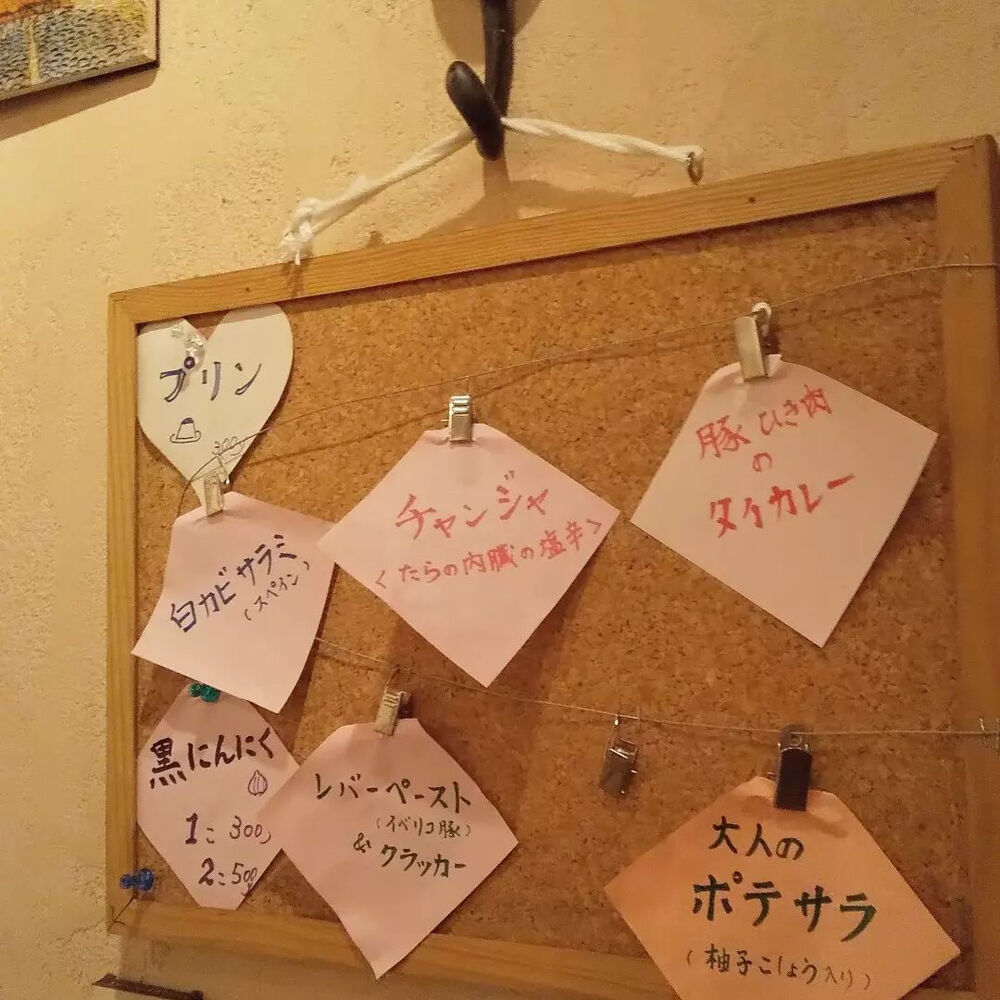 プリン
300
白カビサラミ
(スペイン)
チャンジャ
<たらの内臓の塩辛>
豚ひき肉
の
タイカレー
黒にんにく
1こ 300
2こ500
レバーペースト
(イベリコ豚)
& クラッカー
大人の
ポテサラ
(柚子こしょう入り)